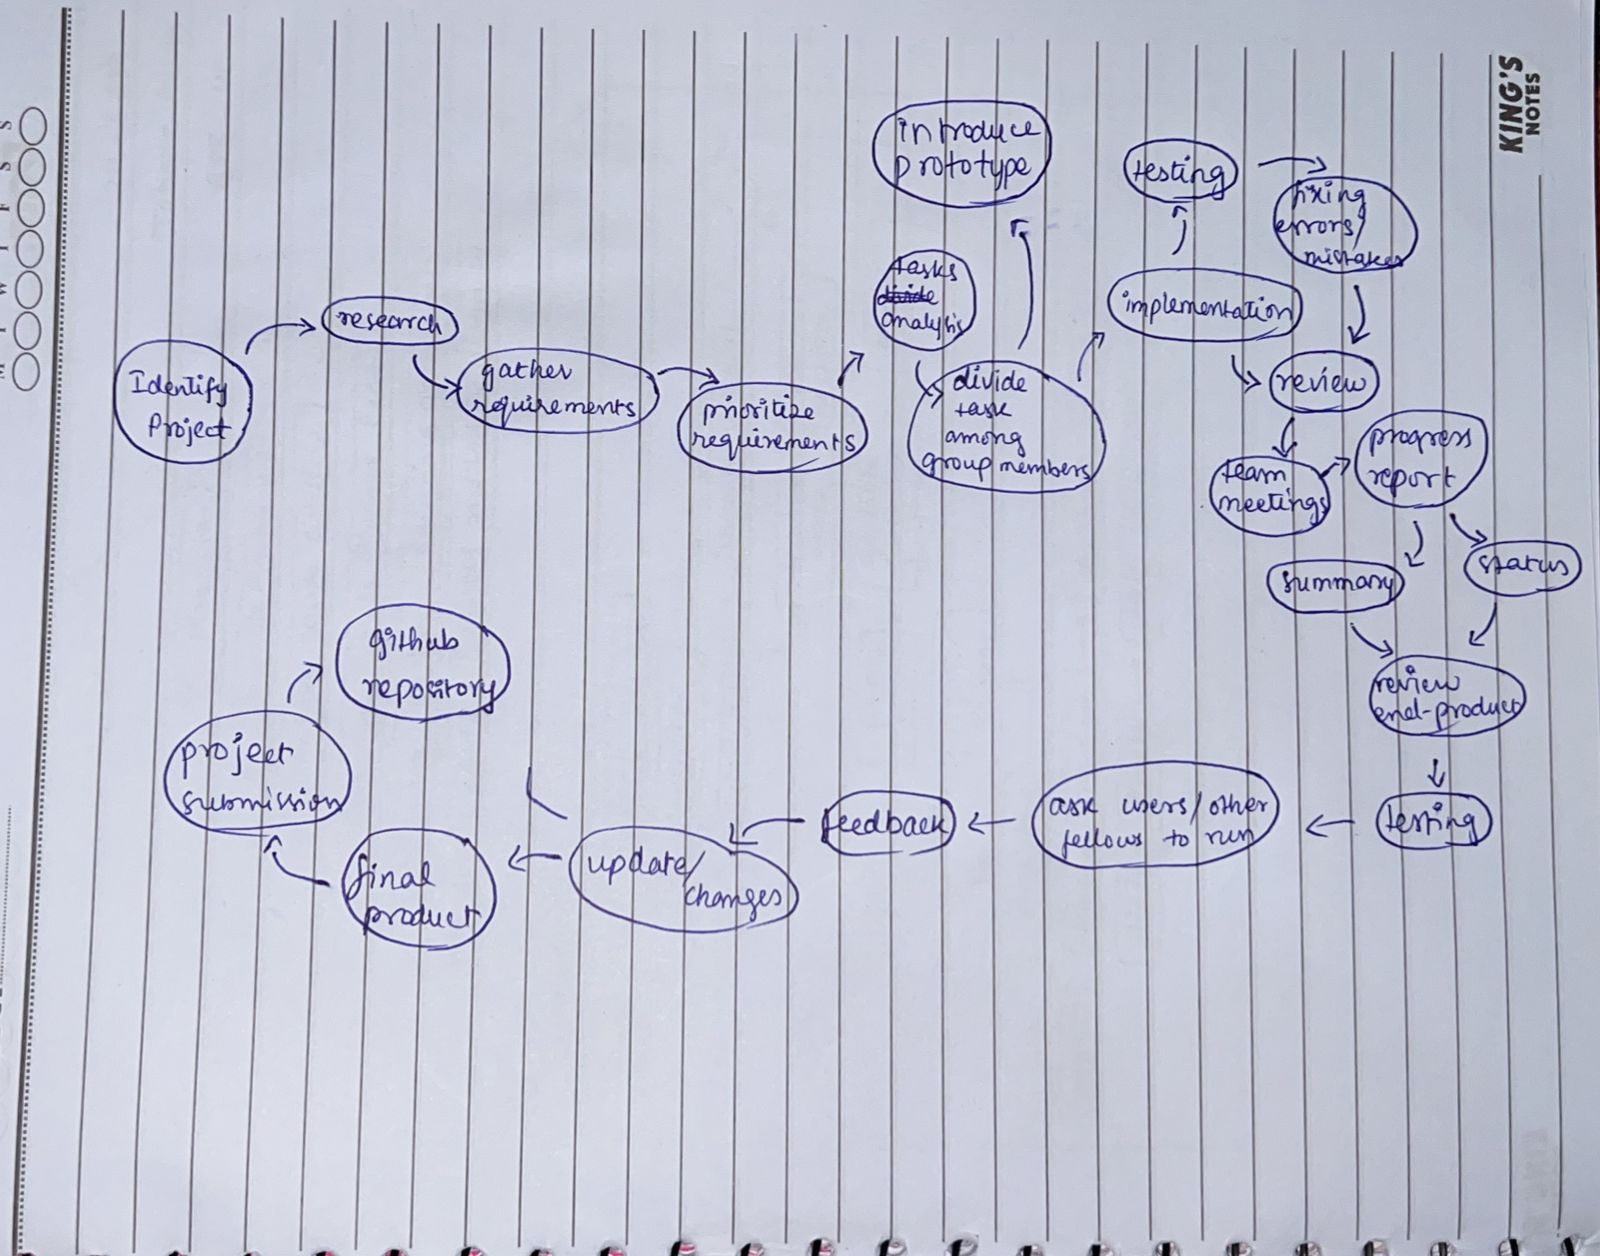 KING'S
NOTES
Identify
Project
research
gather
requirements
prioritize
requirements
tasks
divide
analysis
divide
task
among
group members
introduce
prototype
implementation
testing
fixing
errors/
mistakes
review
team
meetings
progress
report
summary
status
review
end-product
testing
ask users/other
fellows to run
feedback
update/
changes
final
product
project
submission
github
repository
M
T
W
T
F
S
S